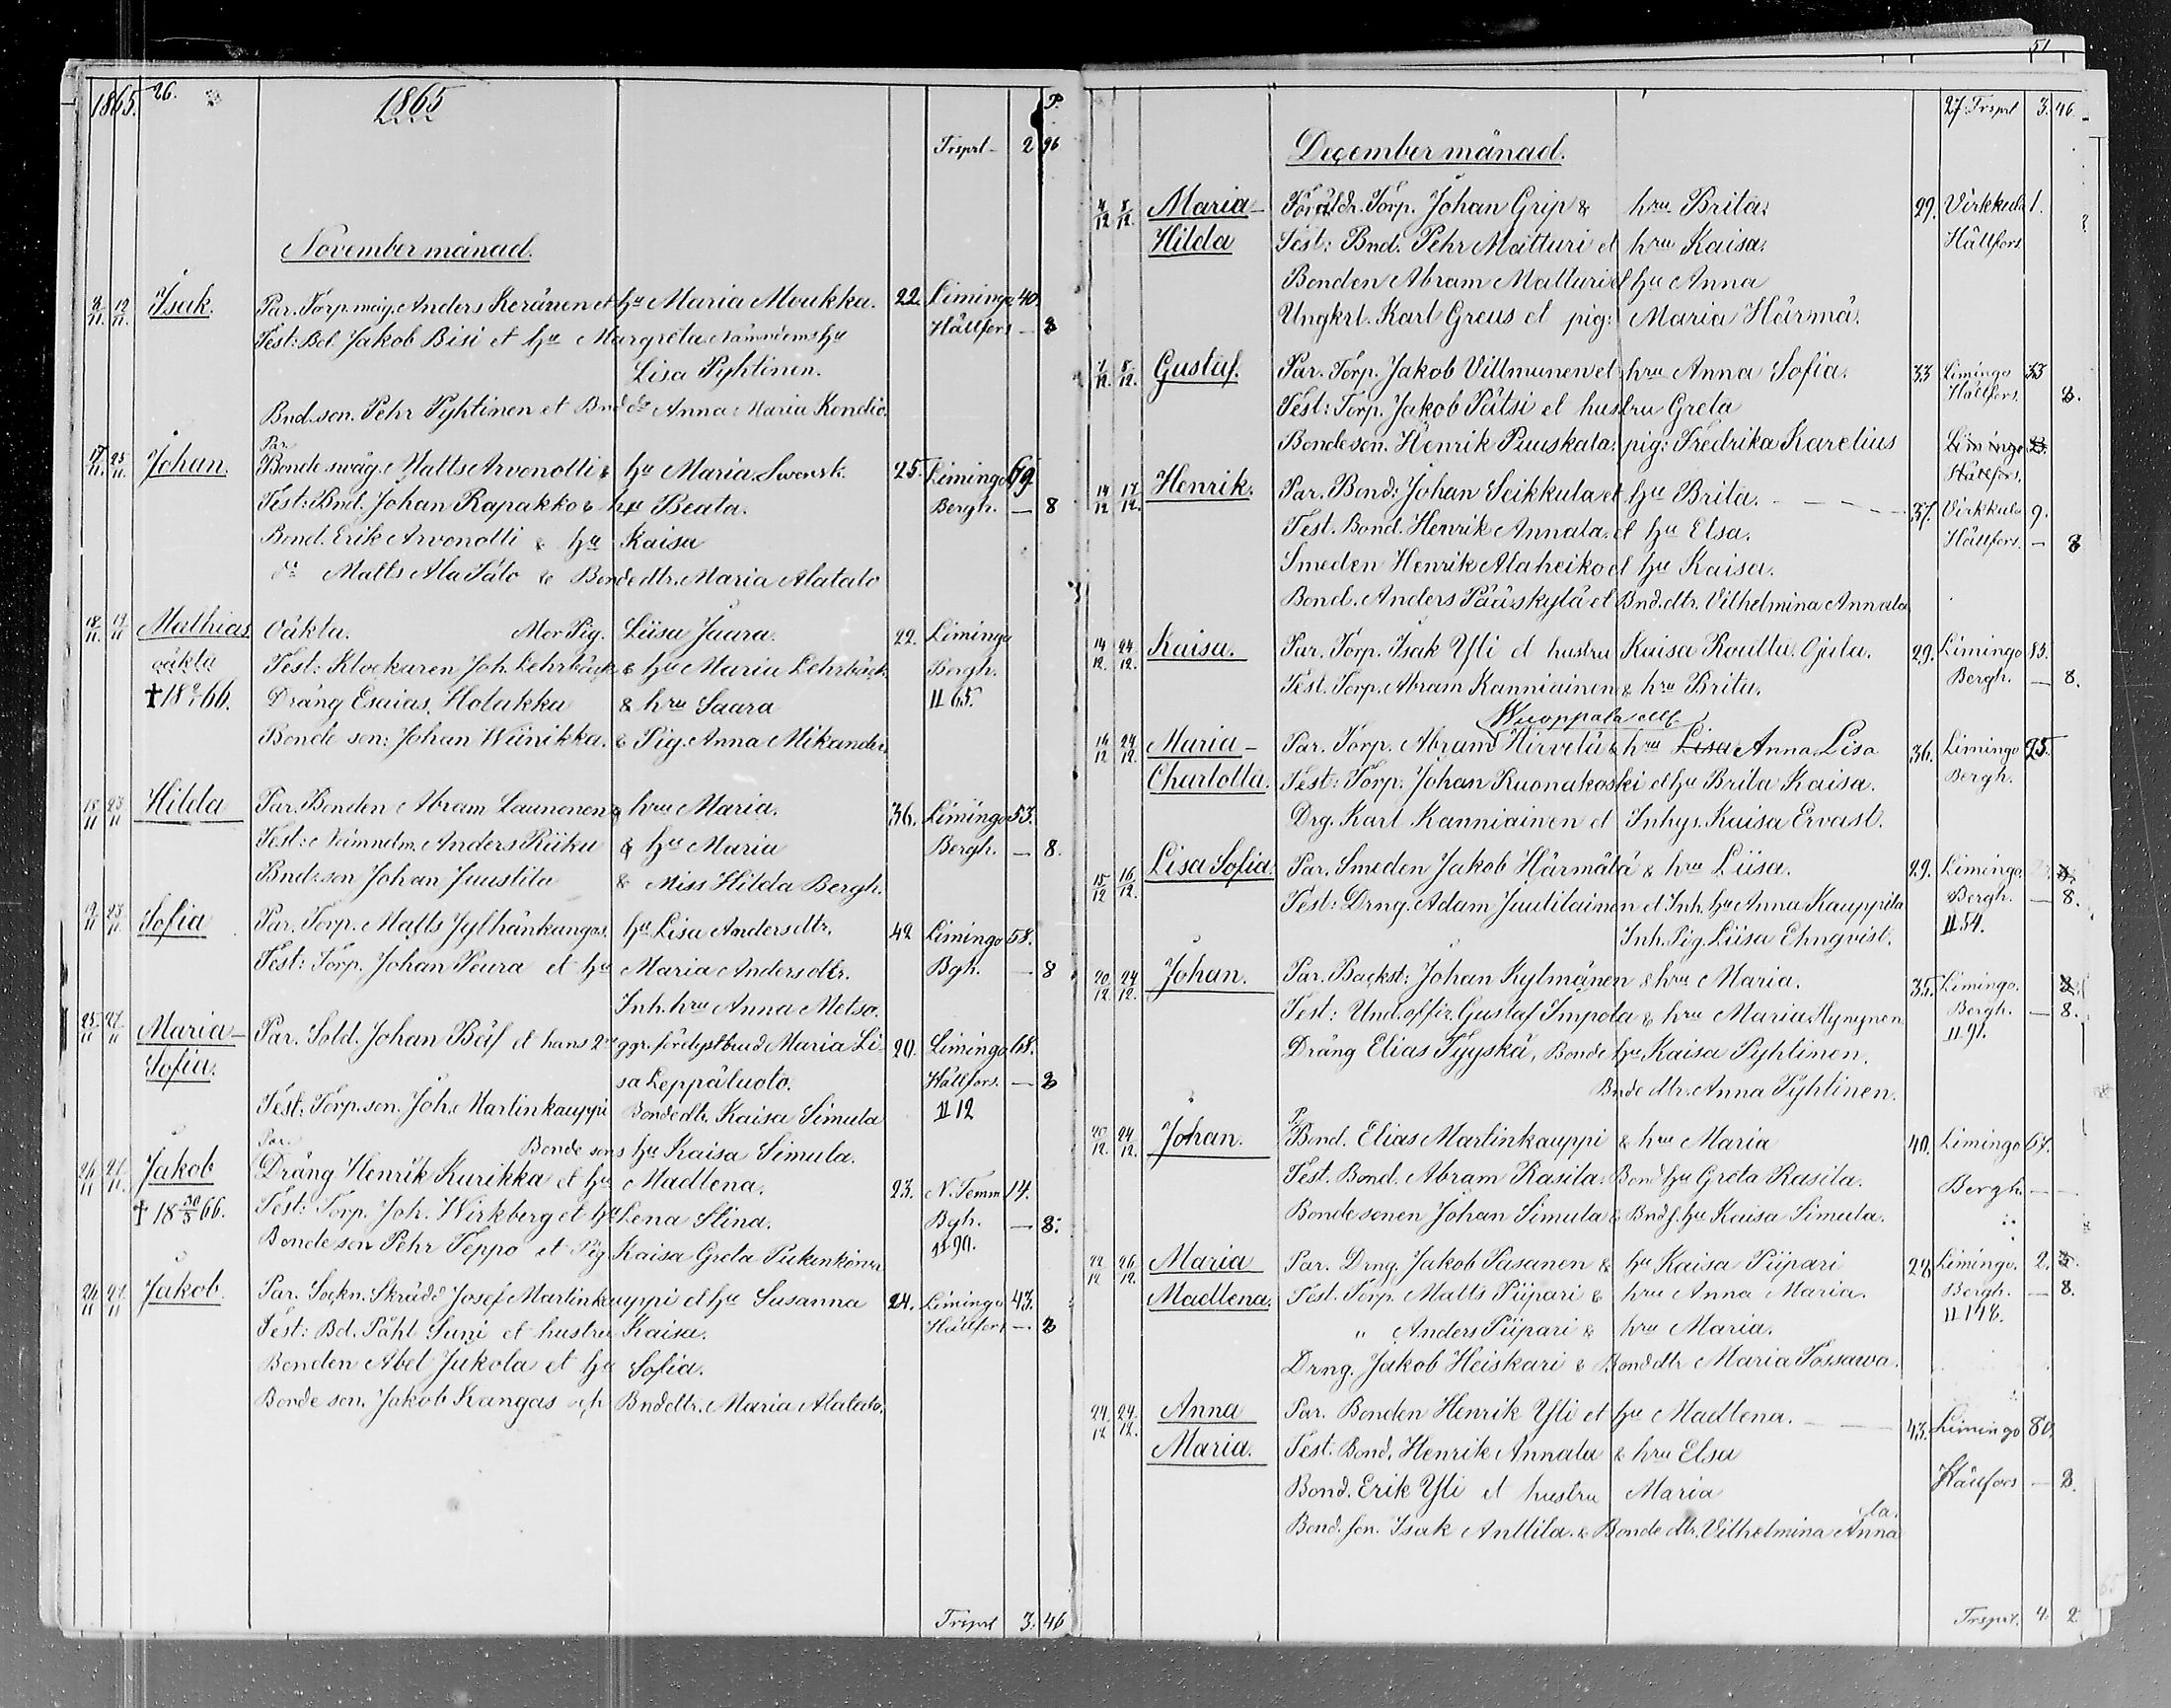 1865. 26. 1865 P.
Trsprt - 2 96
November månad.
8/11 12/11 Isak. Par. Torp.måg. Anders Keränen et hu Maria Moukka. 22. Limingo 40.
Test: Bd. Jakob Bisi et hu Margreta Nämndems hu Hällfors — 8
Lisa Pyhtinen.
Bnd.son. Pehr Pyhtinen et Bnd dr Anna Maria Kondio.
Par.
17/11 25/11 Johan. Bonde swåg. Matts Arvonotti & hu Maria Swensk. 25. Limingo 69.
Test: Bnd. Johan Rapakko & hu Beata. Bergh. — 8
Bond. Erik Arvonotti & hu Kaisa
do Matts Ala Talo & Bonde dtr. Maria Alatalo
18/11 19/11 Mathias Oäkta. Mor Pig. Liisa Juara. 22. Limingo
oäkta Test: Klockaren Joh. Lehrbäck & hu Maria Lehrbäck. Bergh.
† 18 66. Dräng Esaias Holakka & hru Saara II 65.
Bonde son: Johan Wiinikka. & Pig. Anna Mikander.
15/11 23/11 Hilda Par. Bonden Abram Launonen & hru Maria. 36. Limingo 53.
Test: Nämndm. Anders Riiku & hu Maria Bergh. — 8.
Bnd.son Johan Juustila & Miss Hilda Bergh.
19/11 23/11 Sofia Par. Torp. Matts Jylhänkangas. hu Lisa Andersdtr. 42 Limingo 58.
Test: Torp. Johan Peura et hu Maria Andersdtr. Bgh. — 8
Inh. hru Anna Metso.
25/11 27/11 Maria- Par. Sold. Johan Bäf et hans 2ne ggr. förelystbrud Maria Li- 20. Limingo 68.
Sofia. sa Leppäluoto. Hällfors. — 8
Test: Torp.son. Joh. Martinkauppi Bondedtr. Kaisa Simula II 12
Par. Bonde sons hu Kaisa Simula.
26/11 27/11 Jakob Dräng Henrik Kurikka et hu Madlena. 23. N. Temm. 14.
† 18 30/5 66. Test: Torp. Joh. Wirkberg et hu Lena Stina. Bgh. — 8.
Bonde son Pehr Teppo et Pig. Kaisa Greta II 90.
26/11 27/11 Jakob. Par. Sockn. Skrädd Josef Martinkauppi et hu Susanna 24. Limingo 43.
Test: Bd. Påhl Suni et hustru Kaisa. Hällfors — 8
Bonden Abel Jukola et hu Sofia.
Bonde son. Jakob Kangas och Bnddtr. Maria Alatalo.
Trsprt 3. 46
51
27. Trsprt 3. 46.
December månad.
4/12 5/12 Maria- Föräldr. Torp. Johan Grip & hru Brita. 29. Virkkula 1.
Hilda Test: Bnd. Pehr Matturi et hru Kaisa. Hällfors
Bonden Abram Matturi et hu Anna
Ungkrl. Karl Greus et pig: Maria Härmä.
1/12 5/12 Gustaf. Par. Torp. Jakob Villmunen et hru Anna Sofia. 33 Limingo 33
Test: Torp. Jakob Pätsi et hustru Greta Hällfors. 8.
Bonde son. Henrik Puuskala. pig: Fredrika Karelius Limingo 33.
Hällfors.
14/12 17/12 Henrik. Par. Bond: Johan Seikkula et hu Brita. 37. Virkkula 9.
Test. Bond. Henrik Annala. et hu Elsa. Hällfors. — 8
Smeden Henrik Alaheiko et hu Kaisa.
Bond. Anders Pääskylä et Bnd.dtr. Vilhelmina Annala
14/12 24/12 Kaisa. Par. Torp. Isak Yli et hustru Kaisa Routtu Ojala. 29. Limingo 85.
Test. Torp. Abram Kanniainen & hru Brita. Bergh. — 8.
Wuoppala
14/12 24/12 Maria- Par. Torp. Abram Hirvelä & hru Lisa Anna Lisa 36. Limingo 25.
Charlotta. Test: Torp. Johan Ruonakoski et hu Brita Kaisa. Bergh.
Drg. Karl Kanniainen et Inhys. Kaisa Ervast.
15/12 16/12 Lisa Sofia. Par. Smeden Jakob Härmälä & hru Liisa. 29. Limingo. 8.
Test: Drng. Adam Juutilainen et Inh. hu Anna Kauppila Bergh. — 8.
Inh. Pig. Liisa Ehnqvist. II 54.
20/12 24/12 Johan. Par. Backst: Johan Kylmänen & hru Maria. 35. Limingo. 8
Test: Und.offir. Gustaf Impola & hru Maria Hynynen Bergh. — 8.
Dräng Elias Tyyskä, Bonde hu Kaisa Pyhtinen. II 91.
Bnde dtr. Anna Pyhtinen.
P.
20/12 24/12 Johan. Bond. Elias Martinkauppi & hru Maria 40. Limingo 67.
Test. Bond. Abram Rasila. Bond hu Greta Rasila. Bergh. — —
Bonde sonen Johan Simula & Bndf. hu Kaisa Simula.
22/12 26/12 Maria Par. Drng. Jakob Pasanen & hu Kaisa Piipari 28 Limingo. 2. 8.
Madlena. Test. Torp. Matts Piipari & hru Anna Maria. Bergh. — 8.
" Anders Piipari & hru Maria. II 148.
Drng. Jakob Heiskari & Bonddtr Maria Tossawa.
24/12 24/12 Anna Par. Bonden Henrik Yli et hu Madlena. 43. Limingo 80.
Maria. Test: Bond. Henrik Annala & hru Elsa
Bond. Erik Yli et hustru Maria Hällfors — 8.
Bond. son. Isak Anttila. & Bonde dtr. Vilhelmina Anna
la.
Trsprt. 4. 2